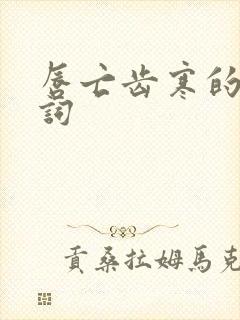 唇亡齿寒的
詞
貢桑拉姆馬克